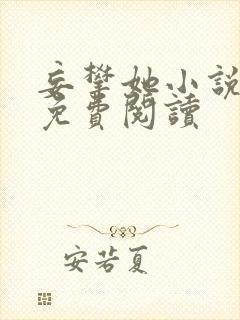 妄攀她小說
免費閱讀
安若夏